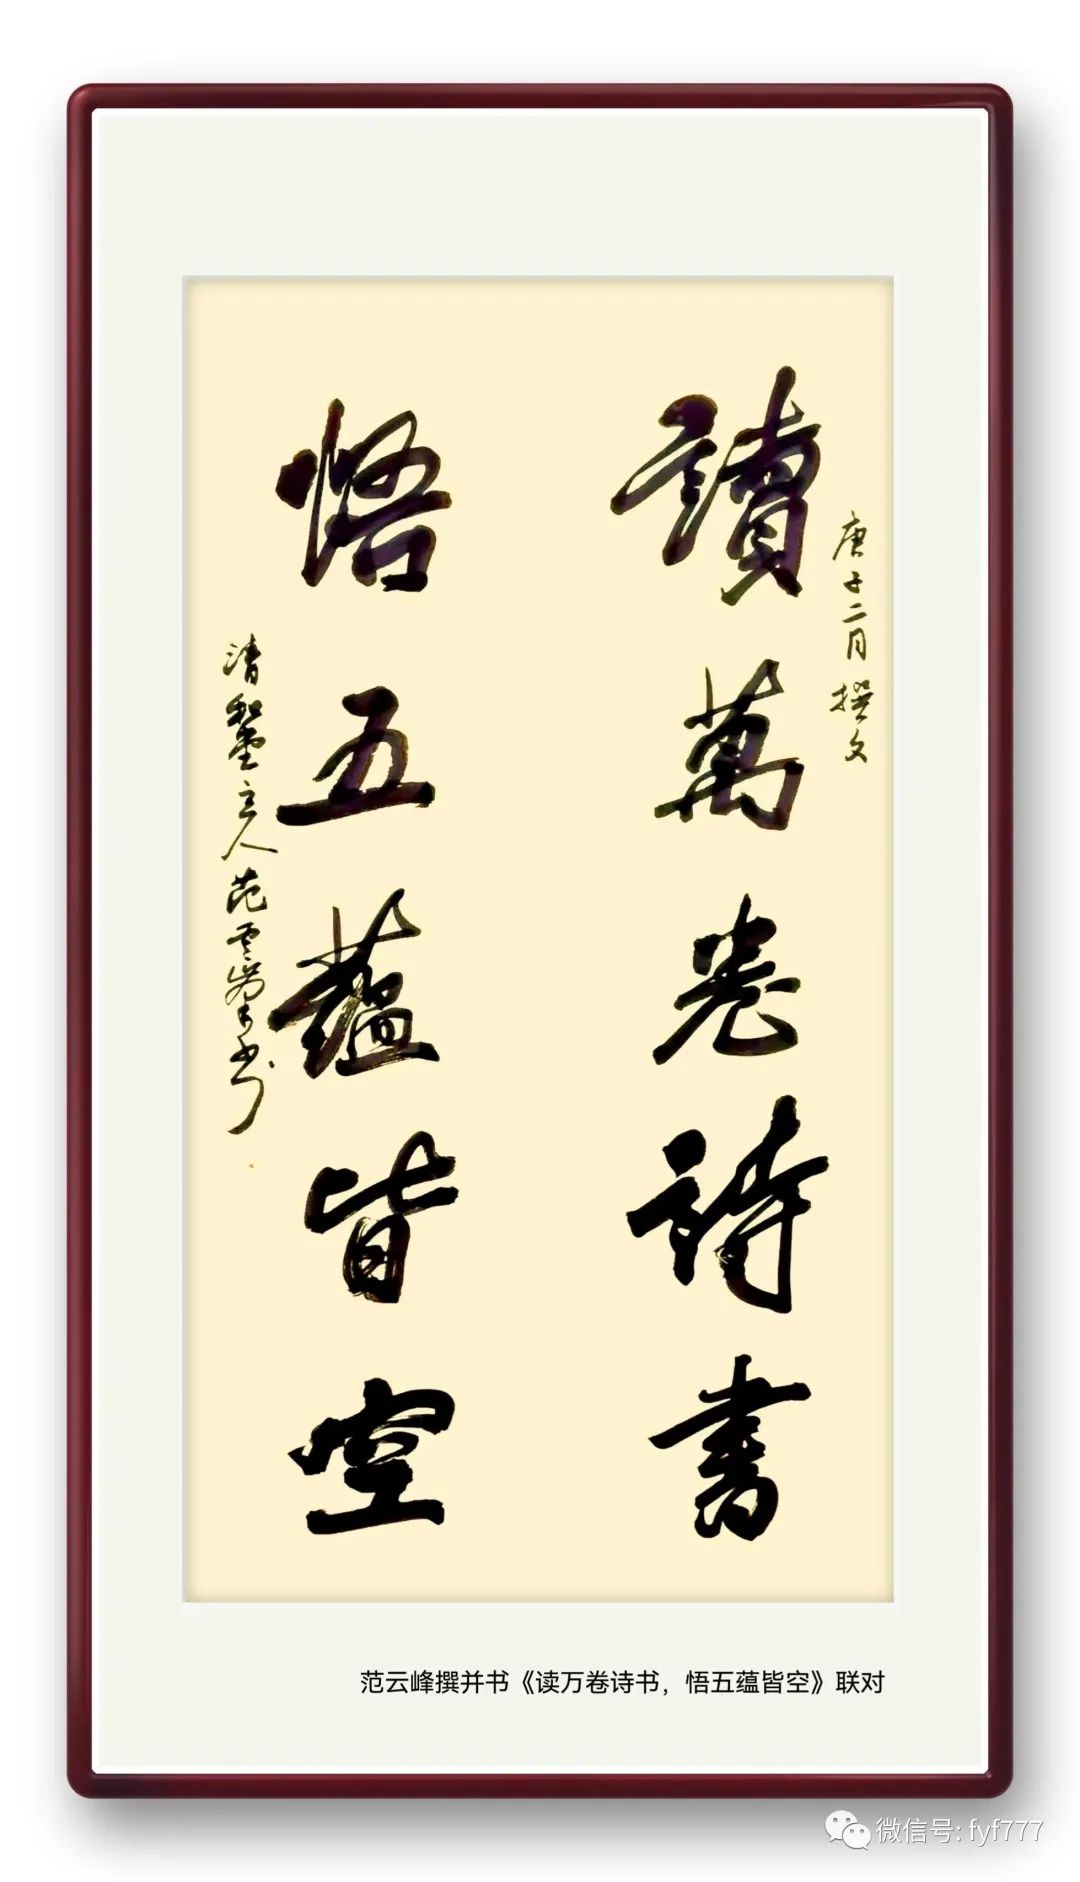 庚子二月撰文
讀萬卷詩書
悟五蘊皆空
清墼主人范雲峯书
范云峰撰并书《读万卷诗书，悟五蕴皆空》联对
微信号: fyf777